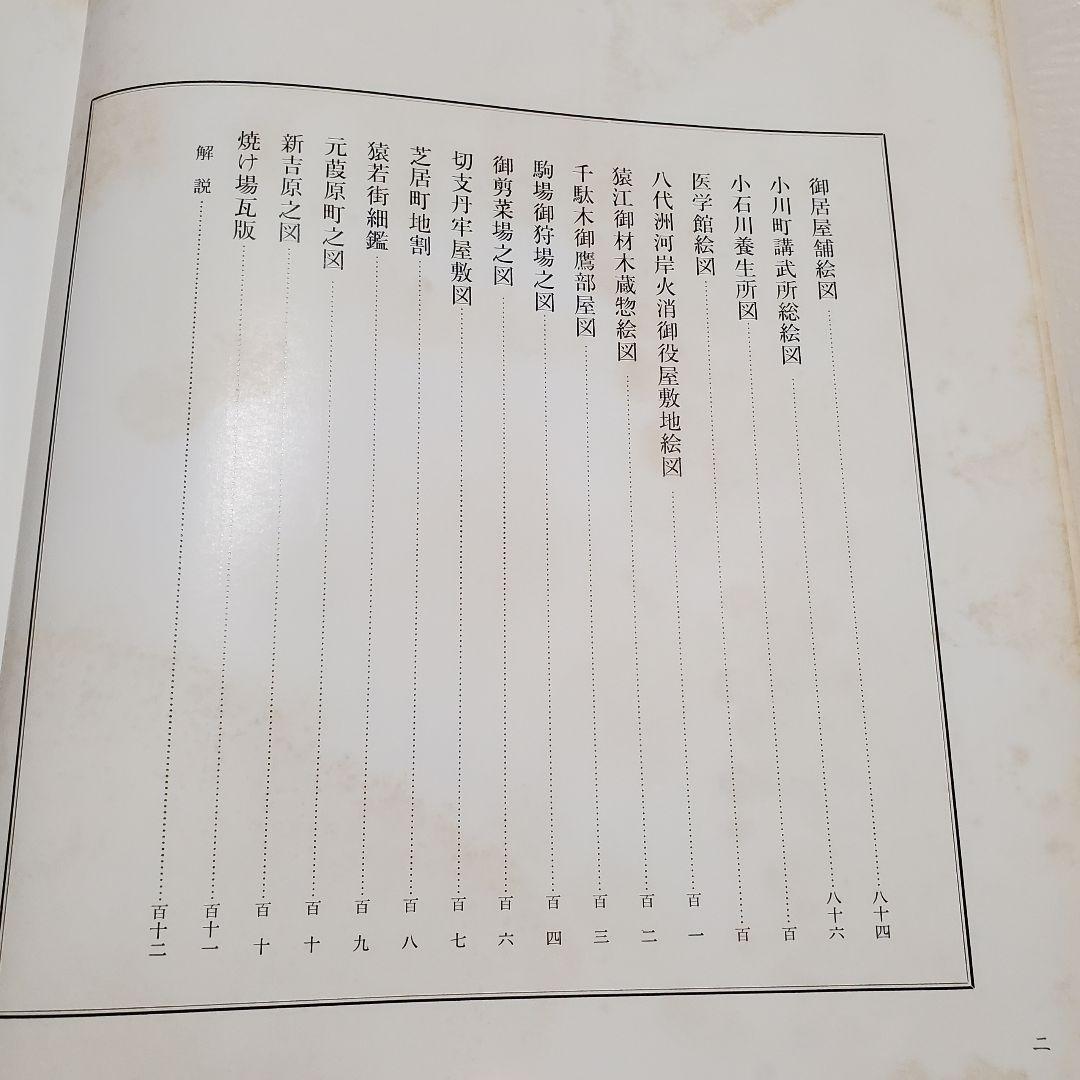 御居屋舗絵図……八十四
小川町講武所総絵図……八十六
小石川養生所図……百
医学館絵図……百
八代洲河岸火消御役屋敷地絵図……百一
猿江御材木蔵惣絵図……百二
千駄木御鷹部屋図……百三
駒場御狩場之図……百四
御剪菜場之図……百六
切支丹牢屋敷図……百七
芝居町地割……百八
猿若街細鑑……百九
元葭原町之図……百十
新吉原之図……百十
焼け場瓦版……百十一
解説……百十二
二